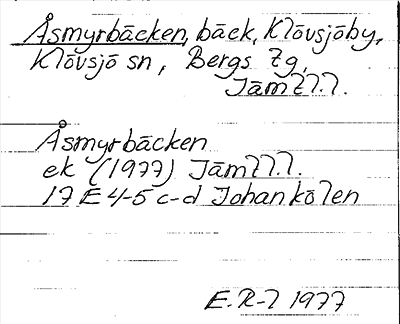 Åsmyrbäcken, bäck, Klövsjöby,
Klövsjö sn, Bergs tg,
Jämtl.l.
Åsmyrbäcken
ek (1977) Jämtl.l.
17 E 4-5 c-d Johankölen
E. R-l 1977